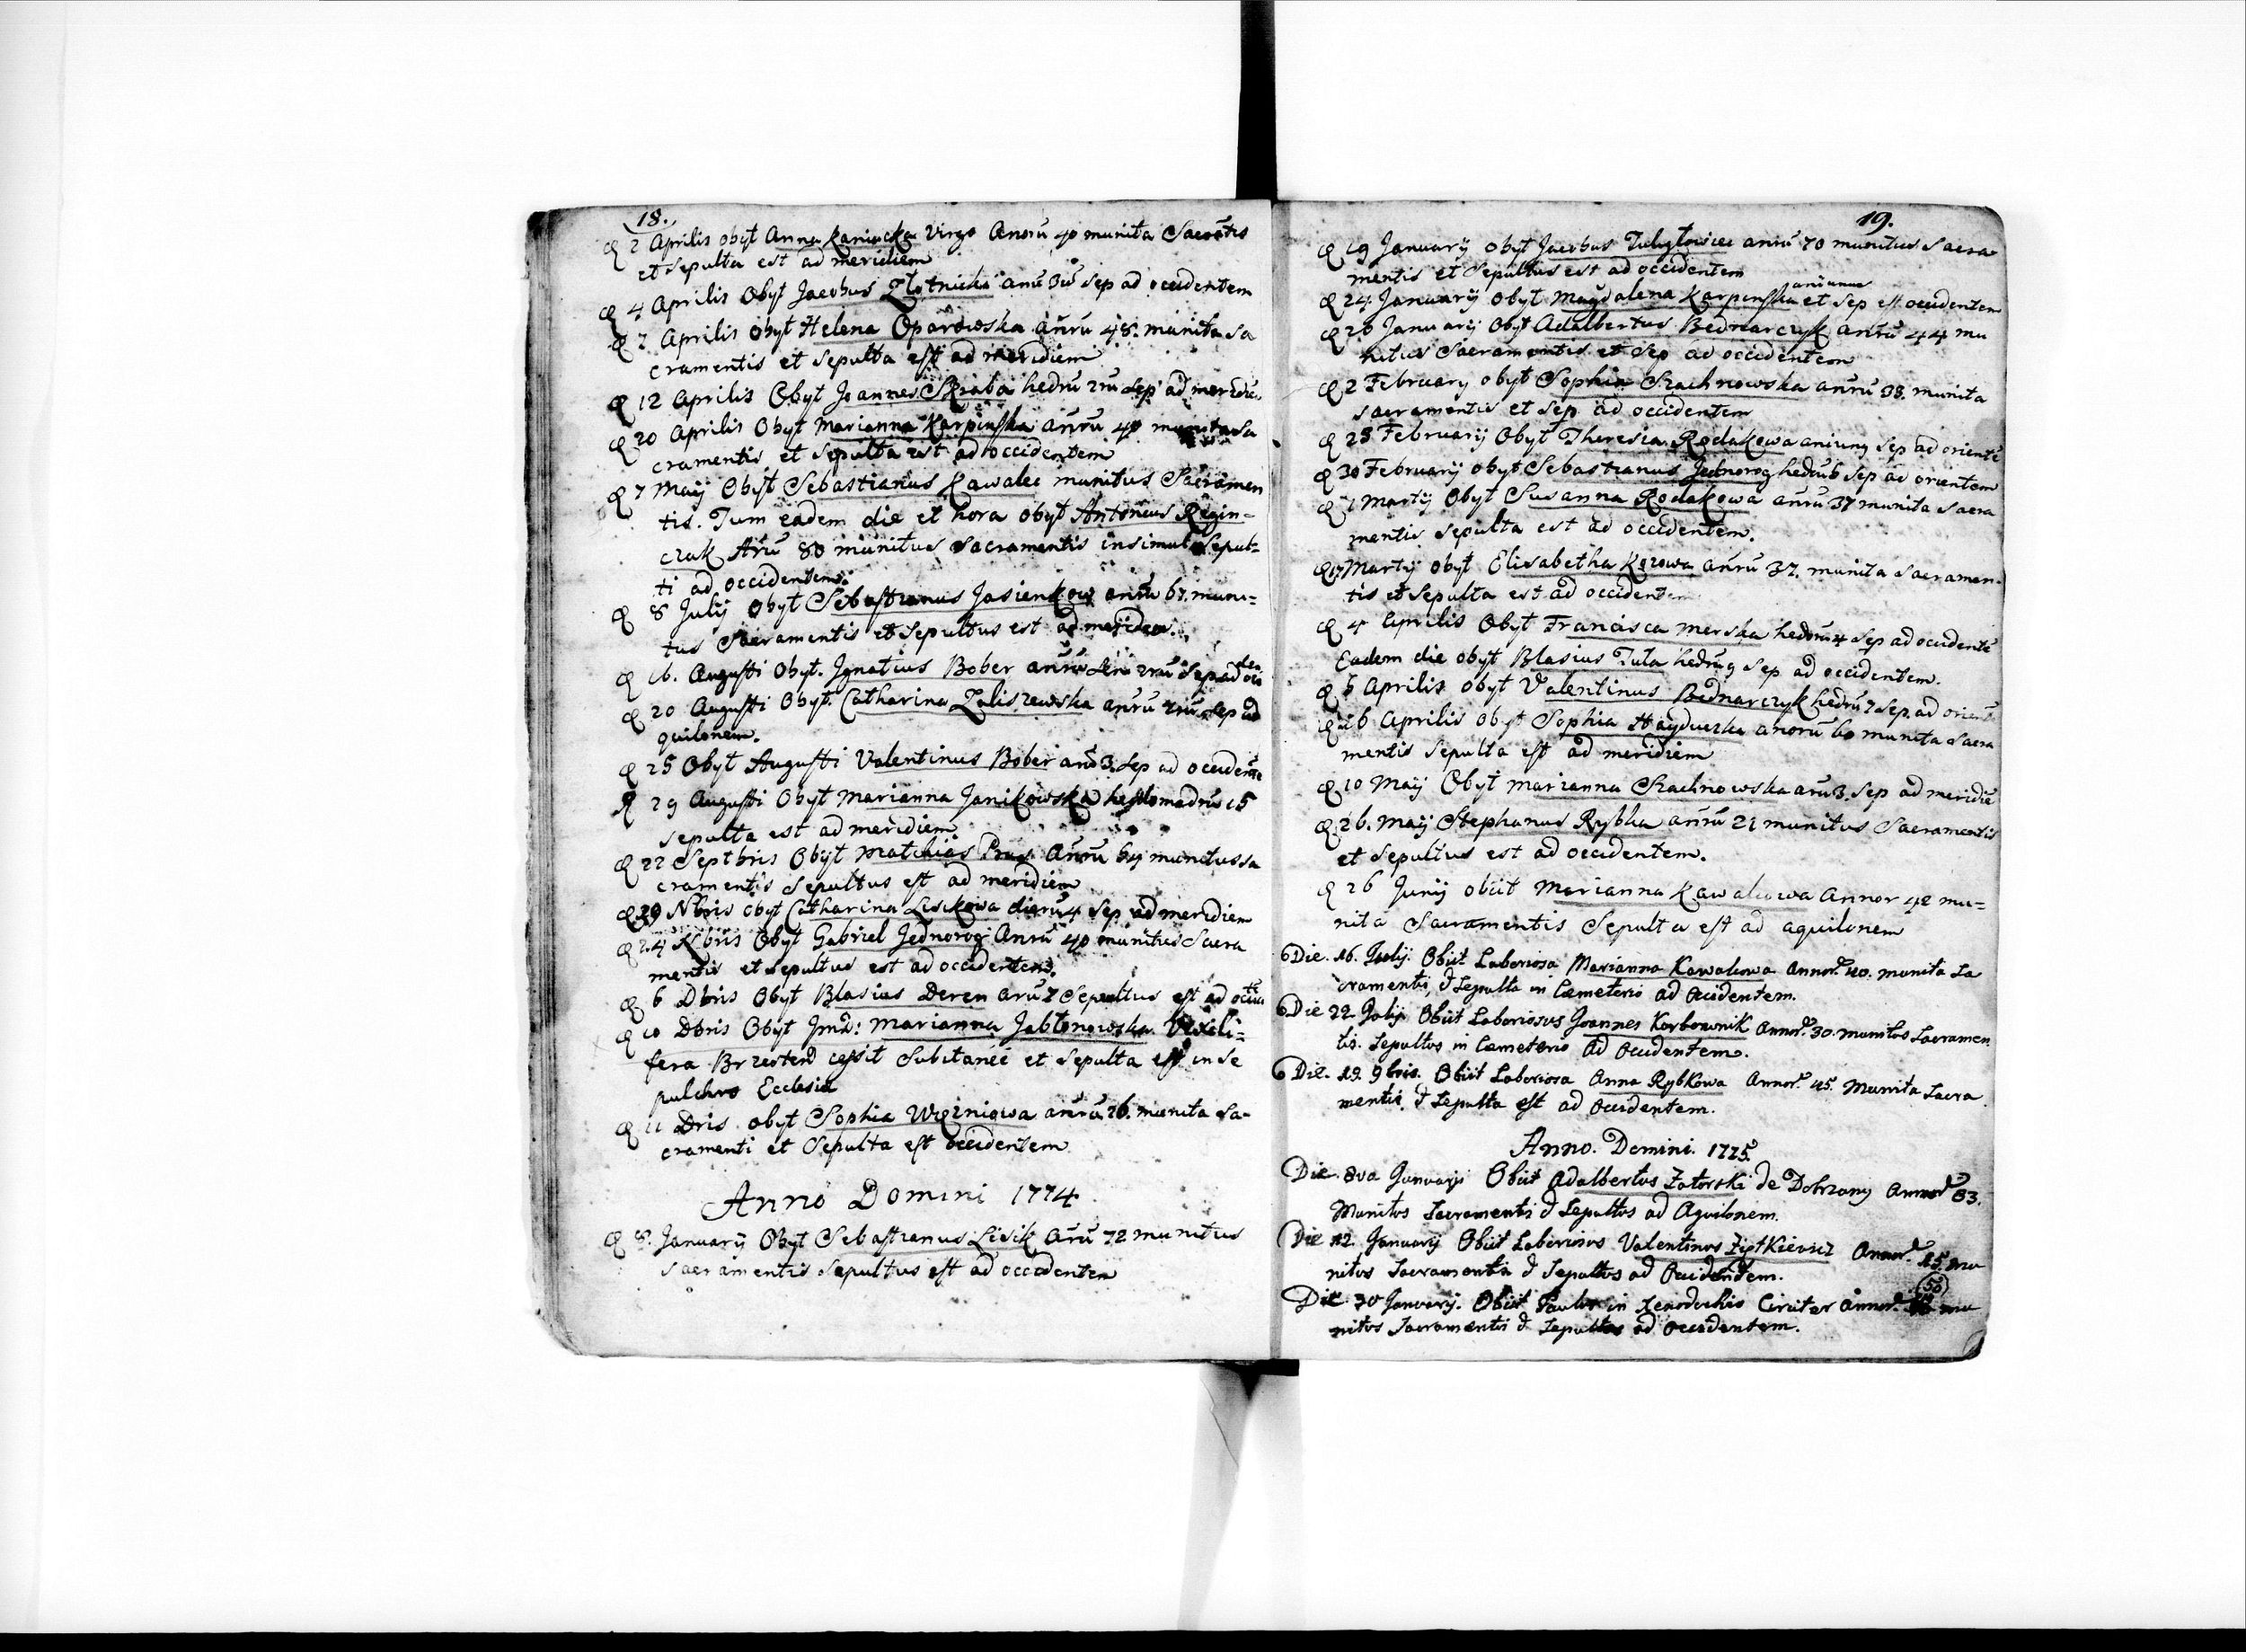 18.
2 Aprilis obÿt Anna Kaniucka Virgo Anoru 40 munita Sacrõtis
et Sepulta est ad meridiem
4 Aprilis Obÿt Jacobus Złotnicki anũ Sep ad occidentem
7 Aprilis Obÿt Helena Oparowska añrũ 48. munita Sa
cramentis et Sepulta est ad meridiem
12 Aprilis Obÿt Joannes Skraba hedrũ 2rũ Sep ad meridie
20 Aprilis Obÿt Marianna Karpinska añrũ 40 munita Sa
cramentis et Sepulta est ad occidentem
7 Maÿ Obÿt Sebastianus Kawalec munitus Sacramen
tis. Tum eadem die et hora obÿt Antonius Regin-
czuk Arũ 80 munitus Sacramentis insimul Sepul=
ti ad occidentem.
8 Julÿ Obÿt Sebastianus Jasienkow anrũ 67. muni=
tus Sacramentis et Sepultus est ad meridiem.
16. Augusti Obÿt. Ignatius Bober anrũ 2rũ Sep ad occi
20 Augusti Obÿt. Catharina Zaliszewska anrũ 2rũ Sep ad
quilonem.
25 Obÿt Augusti Valentinus Bober arũ 3. Sep ad occidente
29 Augusti Obÿt Marianna Janikowska hebdomadrũ 15
Sepulta est ad meridiem.
22 Septbris Obÿt Mathias Anru 69 munitus sa
cramentis Sepultus est ad meridiem
29 Nbris obÿt Catharina Lisikowa dierũ 4 Sep ad meridiem
24 Nbris Obÿt Gabriel Jednorog Anrũ 40 munitus Sacra
mentis et Sepultus est ad occidentem.
6 Dbris Obÿt Blasius Deren arũ 7 Sepultus est ad
10 Dbris Obÿt Marianna Jabłonowska Vexili=
fera cessit Subitanee et Sepulta est in Se
pulchro Ecclesia
11 Dris obÿt Sophia Więzniowa anrũ 26. munita Sa-
cramenti et Sepulta est occidentem
Anno Domini 1774
8. Januarÿ Obÿt Sebastianus Lisik arũ 72 munitus
Sacramentis Sepultus est ad occidentem
19.
19 Januarÿ Obÿt Jacobus Tuligłowiec anrũ 70 munitus Sacra
mentis et Sepultus est ad occidentem
24. Januarÿ Obÿt Magdalena Karpinska et Sep occidentem
26 Januarÿ Obÿt Adalbertus Bednarczyk añrũ 44 mu
nitus Sacramentis et Sep ad occidentem
2 February obÿt Sophia Szachnowska anrũ 38. munita
sacramentis et Sep ad occidentem
25 Februarÿ Obÿt Theresia Rodakowa Sep ad oriente
30 Februarÿ obÿt Sebastianus Jednorog hedrũ 6 Sep ad orientem
1 Martÿ Obÿt Susanna Rodakowa anrũ 37 munita Sacra
mentis Sepulta est ad occidentem.
17 Martÿ obÿt Elisabetha Kozowa anrũ 37. munita Sacramen-
tis et Sepulta est ad occidentem
4 Aprilis Obÿt Francisca Merska hedrũ 4 Sep ad occidente
Eadem die obÿt Blasius Tuła hedrũ 9 Sep ad occidentem.
5 Aprilis obÿt Valentinus Bednarczyk hedrũ 7 Sep. ad orient
26 Aprilis obÿt Sophia Hayduczka anorũ 60 munita Sacra
mentis Sepulta est ad meridiem
10 Maÿ Obÿt Marianna Szachnowska arũ 3. Sep ad meridie
26. Maÿ Stephanus Rybka anrũ 21 munitus Sacramentis
et Sepultus est ad occidentem.
26 Junÿ obiit Marianna Kawalcowa Annor 42 mu=
nita Sacramentis Sepulta est ad aquilonem
Die. 16. Julij. Obiit Laboriosa Marianna Kawalcowa Annor. 40. munita Sa
cramentis, & Sepulta in Cæmeterio ad Occidentem.
Die 22. Julij Obiit Laboriosus Joannes Karbownik Annor. 30. munitus Sacramen
tis. Sepultus in Cæmeterio ad Occidentem.
Die. 19. 9bris. Obiit Laboriosa Anna Rybkowa Annor. 45. Munita Sacra
mentis, & Sepulta est ad Occidentem.
Anno. Domini. 1775.
Die. 8va Januarji Obiit Adalbertus Zatorski de Dobrzany Annor 83.
Munitus Sacramentis & Sepultus ad Aquilonem.
Die 12. Januarij Obiit Laboriosus Valentinus Ziętkiewicz Annor. 15. mu
nitus Sacramentis & Sepultus ad Occidentem.
Die 30 Januarij. Obiit Paulus in Xenodochio Circiter Annor. 50 mu
nitus Sacramentis & Sepultus ad Occidentem.